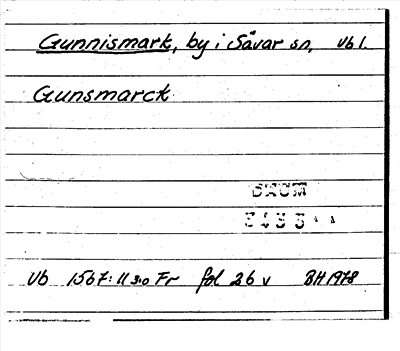 Gunnismark, by i Sävar sn, Vb l.
Gunsmarck
DAUM
Vb 1567:11 Fr fol 26 v BH 1978